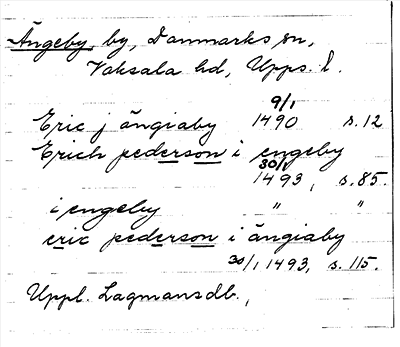 Ängeby, by, Danmarks sn,
Vaksala hd, Upps. l.
9/1
Eric j ängiaby 1490 s. 12
Erich pederson i engeby
30/1
1493, s. 85.
i engeby " "
eric pederson i ängiaby
30/1 1493, s. 115.
Uppl. Lagmansdb.,